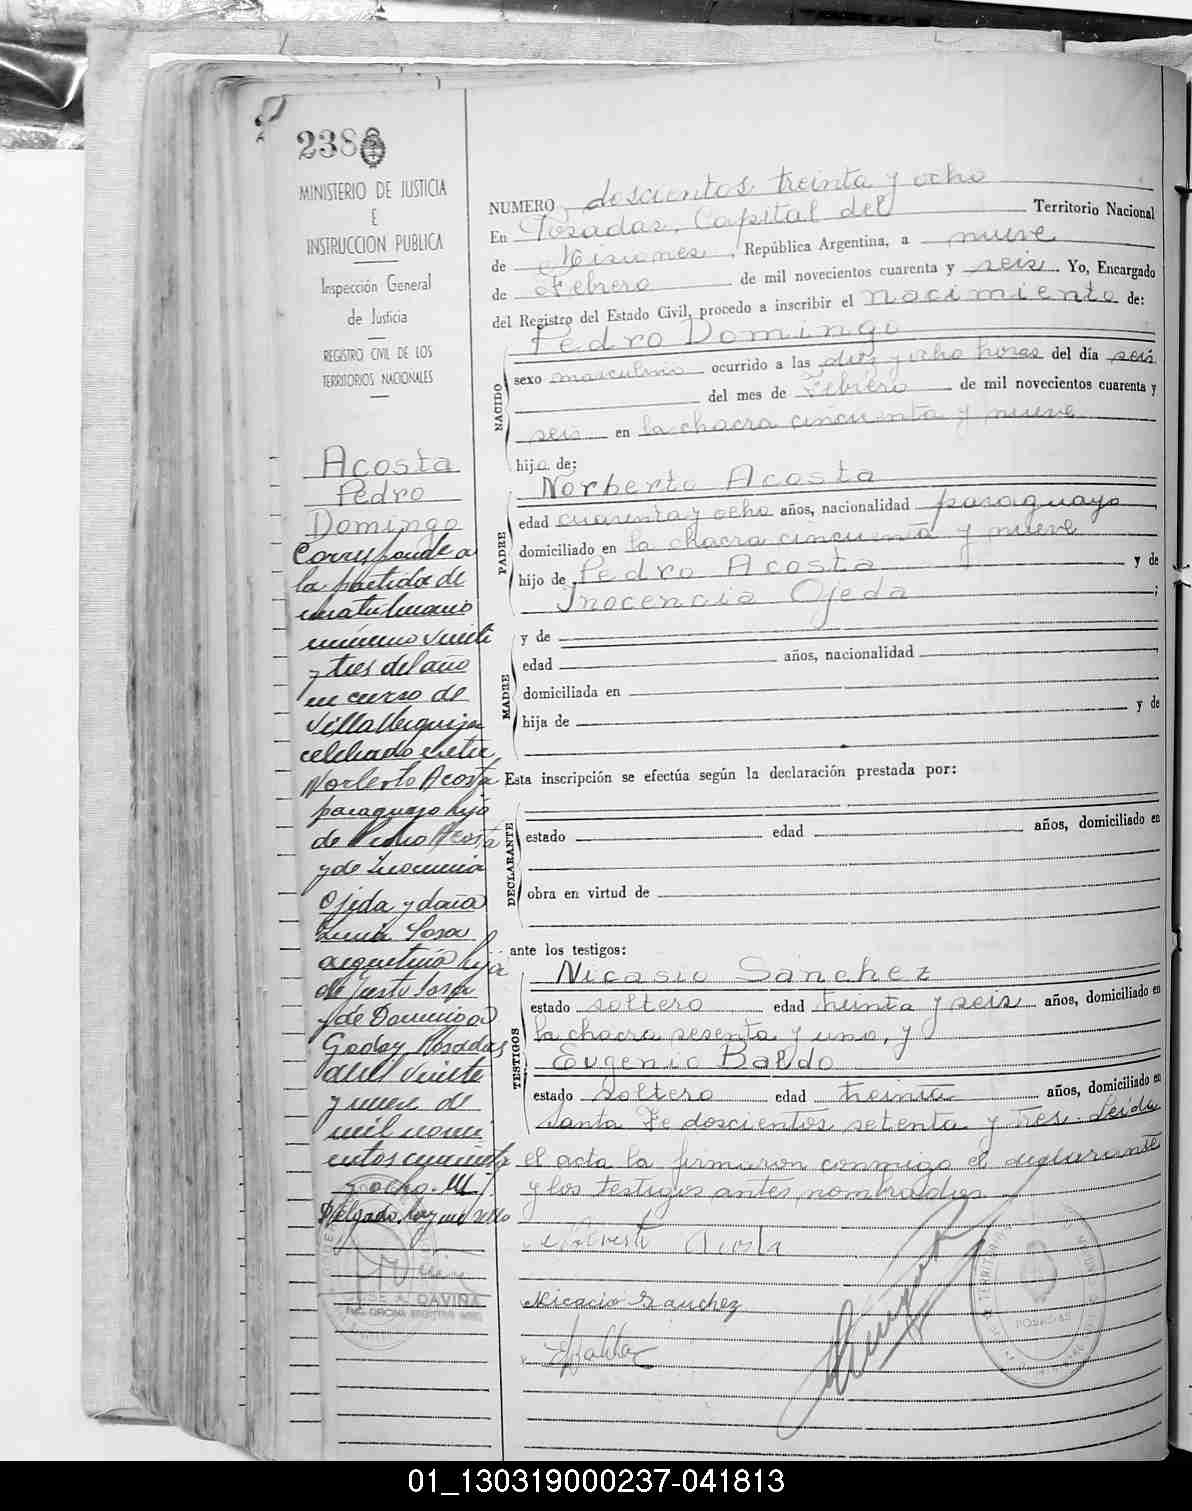 238
MINISTERIO DE JUSTICIA
E
INSTRUCCION PUBLICA
Inspección General
de Justicia
REGISTRO CIVIL DE LOS
TERRITORIOS NACIONALES
Acosta
Pedro
Domingo
Corresponde a
la partida de
matrimonio
número veinti
y tres del año
en curso de
Villa Urquiza
celebrado entre
Norberto Acosta
paraguayo hijo
de Pedro Acosta
y de Inocencia
Ojeda y doña
Lucia Sosa
argentina hija
de Justo Sosa
y de Dominga
Godoy Posadas
veinte
y nueve de
mil nove
cientos cuarenta
y ocho.
Delgado, hay un sello
JOSE A. DAVIÑA
NUMERO doscientos treinta y ocho
En Posadas, Capital del Territorio Nacional
de Misiones, República Argentina, a nueve
de Febrero de mil novecientos cuarenta y seis. Yo, Encargado
del Registro del Estado Civil, procedo a inscribir el nacimiento de:
NACIDO
Pedro Domingo
sexo masculino ocurrido a las diez y ocho horas del día seis
del mes de Febrero de mil novecientos cuarenta y
seis en la chacra cincuenta y nueve
hijo de:
PADRE
Norberto Acosta
edad cuarenta y ocho años, nacionalidad paraguayo,
domiciliado en la chacra cincuenta y nueve
hijo de Pedro Acosta y de
Inocencia Ojeda;
MADRE
y de
edad años, nacionalidad,
domiciliada en
hija de y de
Esta inscripción se efectúa según la declaración prestada por:
DECLARANTE
estado edad años, domiciliado en
obra en virtud de
ante los testigos:
TESTIGOS
Nicasio Sánchez
estado soltero edad treinta y seis años, domiciliado en
la chacra sesenta y uno, y
Eugenio Baldo
estado soltero edad treinta años, domiciliado en
Santa Fe doscientos setenta y tres. Leida
el acta la firmaron conmigo el declarante
y los testigos antes nombrados.
Norberto Acosta
Nicacio Sanchez
EBaldo
POSADAS
01_130319000237-041813